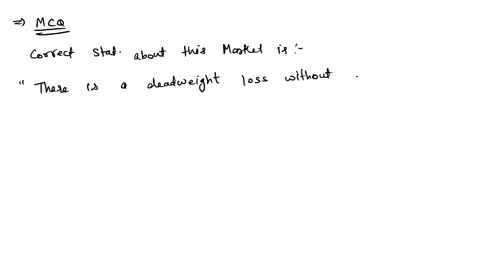 ⇒ MCQ
Correct Stat. about this Market is :-
" There is a deadweight loss without .